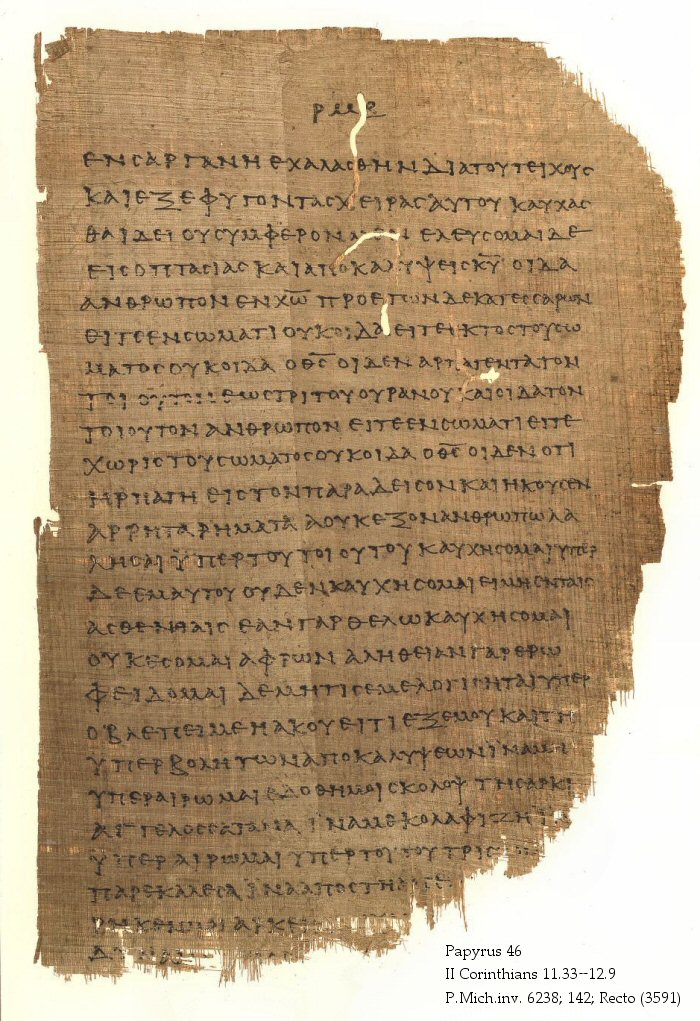 ρμε
ΕΝ ΣΑΡΓΑΝΗ ΕΧΑΛΑΣΘΗΝ ΔΙΑ ΤΟΥ ΤΕΙΧΟΥΣ
ΚΑΙ ΕΞΕΦΥΓΟΝ ΤΑΣ ΧΕΙΡΑΣ ΑΥΤΟΥ ΚΑΥΧΑΣ
ΘΑΙ ΔΕΙ ΟΥ ΣΥΜΦΕΡΟΝ ΕΛΕΥΣΟΜΑΙ ΔΕ
ΕΙΣ ΟΠΤΑΣΙΑΣ ΚΑΙ ΑΠΟΚΑΛΥΨΕΙΣ ΚΥ ΟΙΔΑ
ΑΝΘΡΩΠΟΝ ΕΝ ΧΩ ΠΡΟ ΕΤΩΝ ΔΕΚΑΤΕΣΣΑΡΩΝ
ΕΙΤΕ ΕΝ ΣΩΜΑΤΙ ΟΥΚ ΟΙΔΑ ΕΙΤΕ ΕΚΤΟΣ ΤΟΥ ΣΩ
ΜΑΤΟΣ ΟΥΚ ΟΙΔΑ Ο ΘΣ ΟΙΔΕΝ ΑΡΠΑΓΕΝΤΑ ΤΟΝ
ΤΟΙΟΥΤΟΝ ΕΩΣ ΤΡΙΤΟΥ ΟΥΡΑΝΟΥ ΚΑΙ ΟΙΔΑ ΤΟΝ
ΤΟΙΟΥΤΟΝ ΑΝΘΡΩΠΟΝ ΕΙΤΕ ΕΝ ΣΩΜΑΤΙ ΕΙΤΕ
ΧΩΡΙΣ ΤΟΥ ΣΩΜΑΤΟΣ ΟΥΚ ΟΙΔΑ Ο ΘΣ ΟΙΔΕΝ ΟΤΙ
ΗΡΠΑΓΗ ΕΙΣ ΤΟΝ ΠΑΡΑΔΕΙΣΟΝ ΚΑΙ ΗΚΟΥΣΕΝ
ΑΡΡΗΤΑ ΡΗΜΑΤΑ Α ΟΥΚ ΕΞΟΝ ΑΝΘΡΩΠΩ ΛΑ
ΛΗΣΑΙ ΫΠΕΡ ΤΟΥ ΤΟΙΟΥΤΟΥ ΚΑΥΧΗΣΟΜΑΙ ΥΠΕΡ
ΔΕ ΕΜΑΥΤΟΥ ΟΥΔΕΝ ΚΑΥΧΗΣΟΜΑΙ ΕΙ ΜΗ ΕΝ ΤΑΙΣ
ΑΣΘΕΝΗΑΙΣ ΕΑΝ ΓΑΡ ΘΕΛΩ ΚΑΥΧΗΣΟΜΑΙ
ΟΥΚ ΕΣΟΜΑΙ ΑΦΡΩΝ ΑΛΗΘΕΙΑΝ ΓΑΡ ΕΡΩ
ΦΕΙΔΟΜΑΙ ΔΕ ΜΗ ΤΙΣ ΕΜΕ ΛΟΓΙΣΗΤΑΙ ΥΠΕΡ
Ο ΒΛΕΠΕΙ ΜΕ Η ΑΚΟΥΕΙ ΤΙ ΕΞ ΕΜΟΥ ΚΑΙ ΤΗ
ΥΠΕΡΒΟΛΗ ΤΩΝ ΑΠΟΚΑΛΥΨΕΩΝ ΪΝΑ ΜΗ
ΥΠΕΡΑΙΡΩΜΑΙ ΕΔΟΘΗ ΜΟΙ ΣΚΟΛΟΨ ΤΗ ΣΑΡΚΙ
ΑΓΓΕΛΟΣ ΣΑΤΑΝΑ ΪΝΑ ΜΕ ΚΟΛΑΦΙΖΗ
ΥΠΕΡΑΙΡΩΜΑΙ ΥΠΕΡ ΤΟΥΤΟΥ ΤΡΙΣ
ΠΑΡΕΚΑΛΕΣΑ ΪΝΑ ΑΠΟΣΤΗ
ΑΡΚΕΙ
Papyrus 46
II Corinthians 11.33--12.9
P.Mich.inv. 6238; 142; Recto (3591)